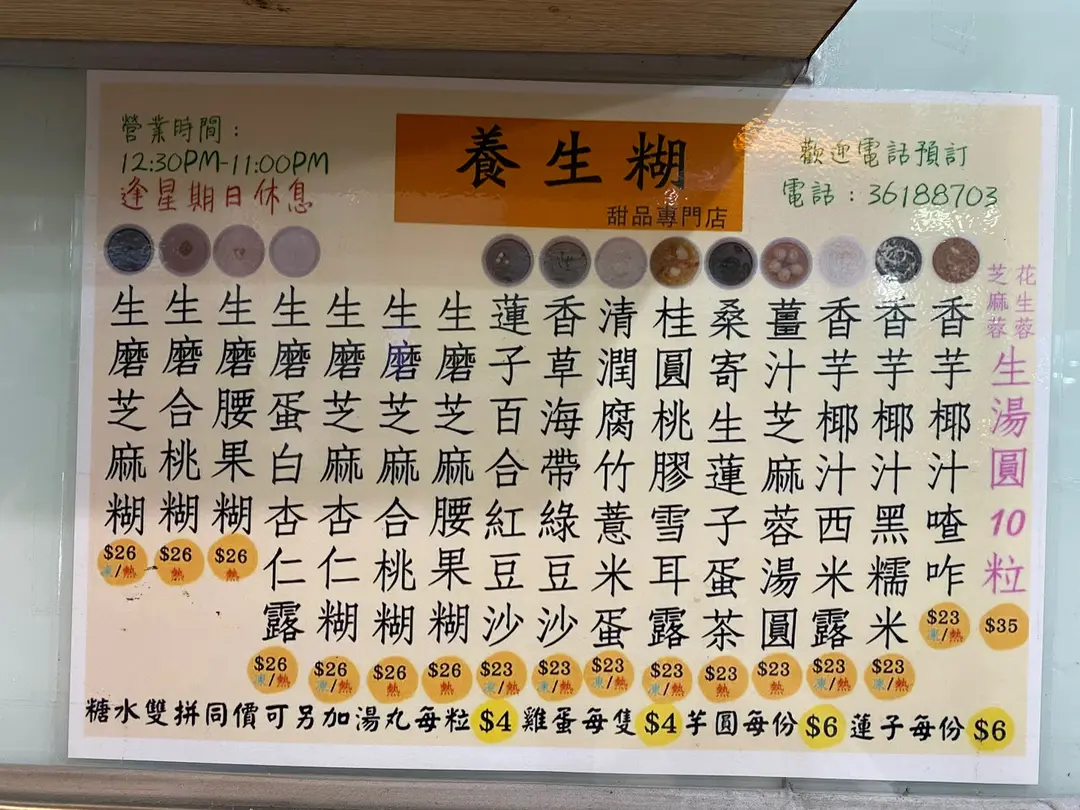 營業時間：
12:30PM-11:00PM
逢星期日休息
養生糊
甜品專門店
歡迎電話預訂
電話：36188703
生磨芝麻糊
$26
凍/熱
生磨合桃糊
$26
熱
生磨腰果糊
$26
熱
生磨蛋白杏仁露
$26
凍/熱
生磨芝麻杏仁糊
$26
凍/熱
生磨芝麻合桃糊
$26
熱
生磨芝麻腰果糊
$26
熱
蓮子百合紅豆沙
$23
凍/熱
香草海帶綠豆沙
$23
凍/熱
清潤腐竹薏米蛋
$23
凍/熱
桂圓桃膠雪耳露
$23
凍/熱
桑寄生蓮子蛋茶
$23
熱
薑汁芝麻蓉湯圓
$23
熱
香芋椰汁西米露
$23
凍/熱
香芋椰汁黑糯米
$23
凍/熱
香芋椰汁喳咋
$23
凍/熱
花生蓉
芝麻蓉
生湯圓10粒
$35
糖水雙拼同價可另加湯丸每粒$4雞蛋每隻$4芋圓每份$6蓮子每份$6